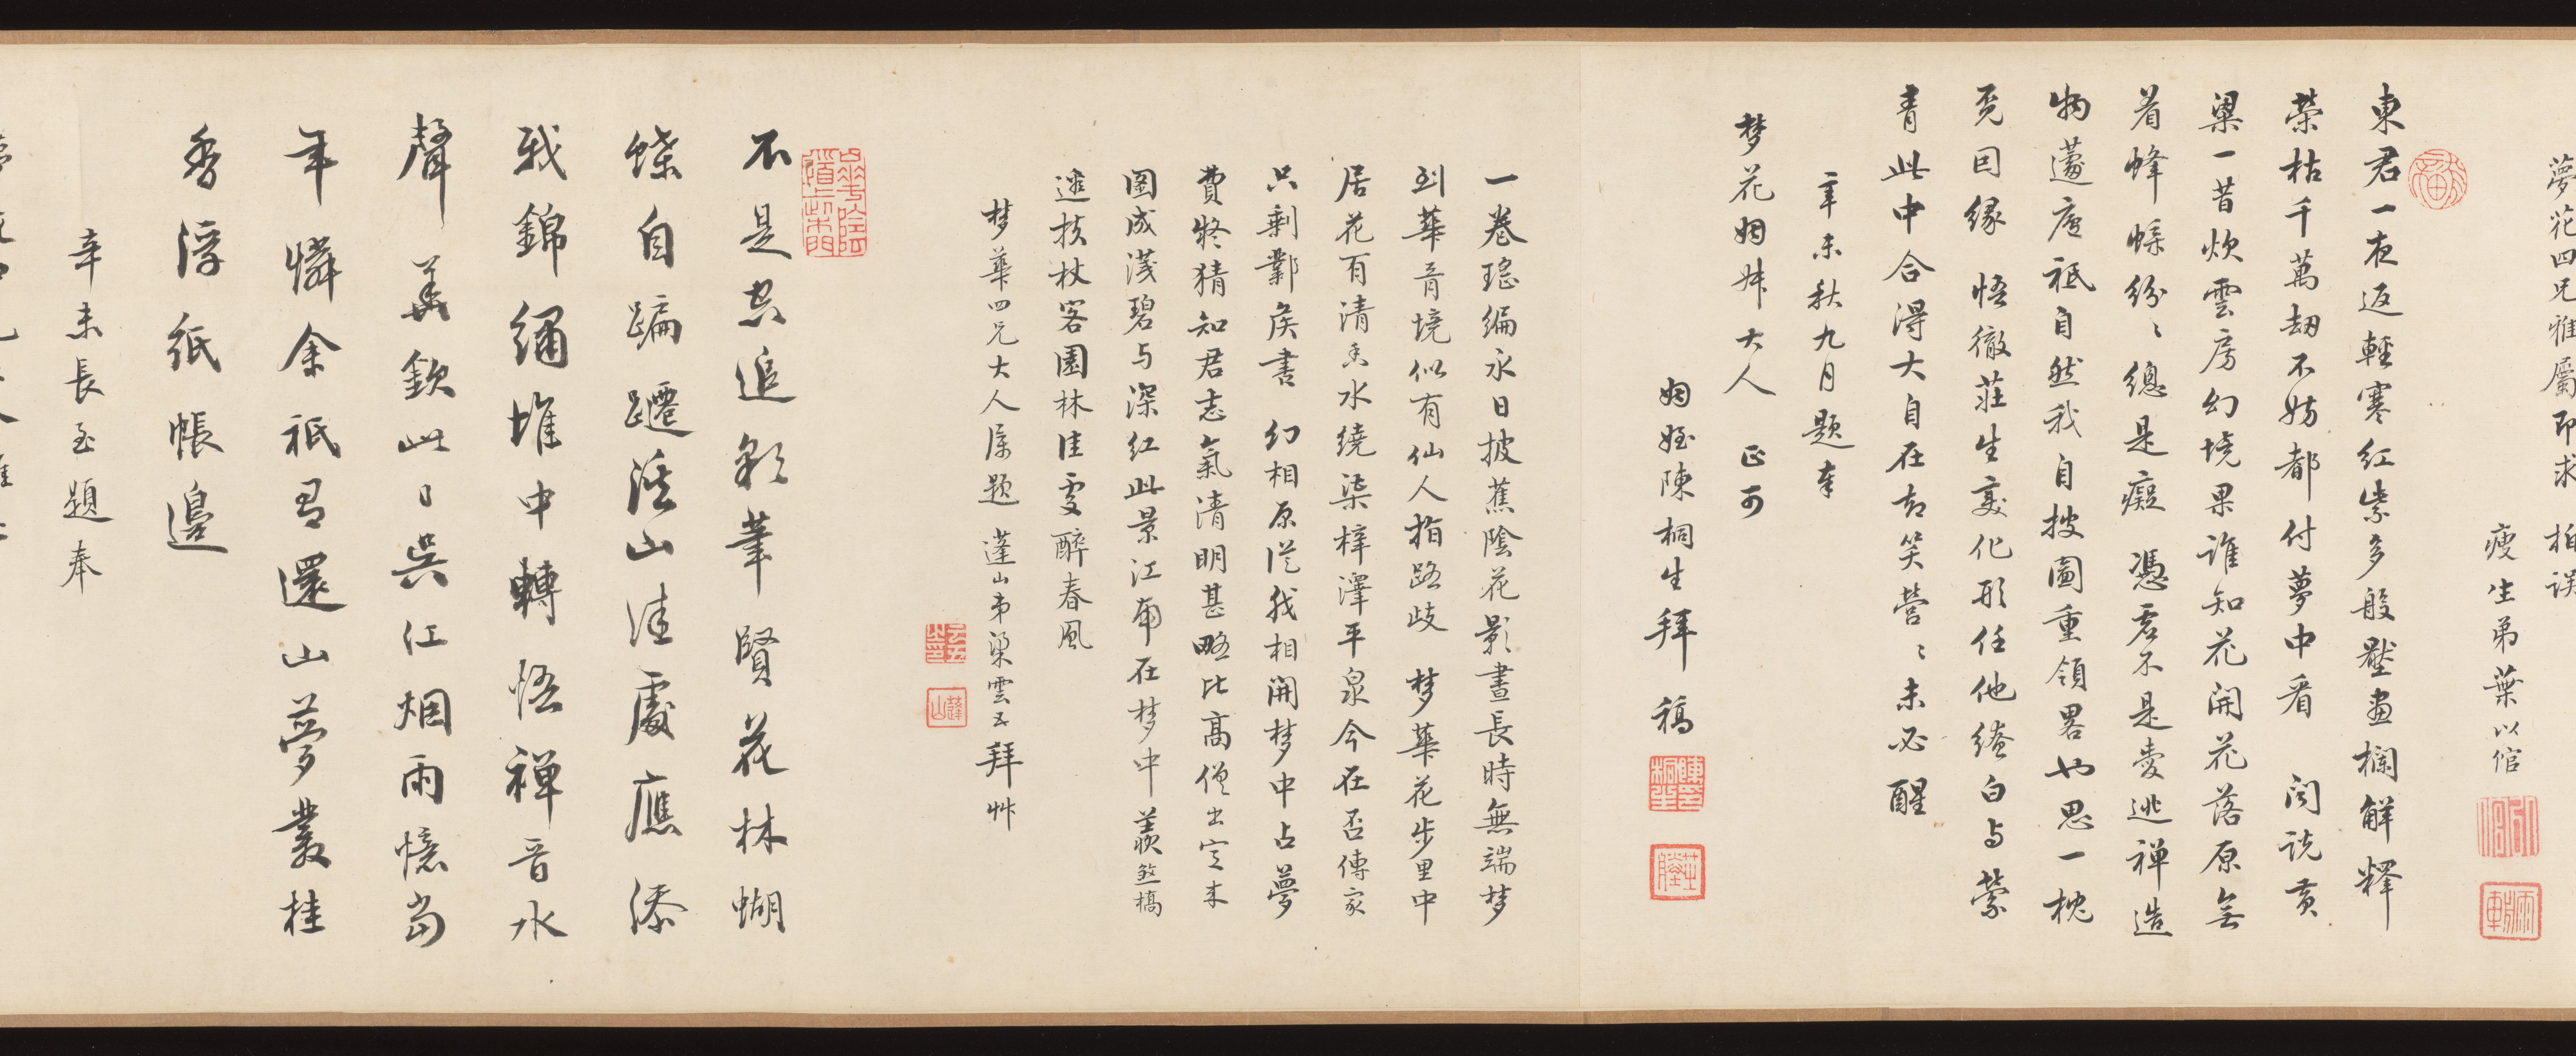 夢花四兄雅屬即求 拍誤
瘦生弟葉以倌
東君一夜返輕寒紅紫多般壓畫欄解釋
榮枯千萬劫不妨都付夢中看 閱說黃
粱一昔炊雲房幻境果誰知花開花落原無
着蜂蝶紛〻總是癡 憑君不是愛逃禪造
物蘧廬祗自然我自披圖重領畧也思一枕
覓因緣 悟徹莊生變化形任他繞白与縈
青此中合得大自在却笑營〻未必醒
辛未秋九月題奉
梦花姻姊大人 正可
姻姪陳桐生拜稿
一卷瑤編永日披蕉陰花影晝長時無端梦
到華胥境似有仙人指路歧 梦華花步里中
居花有清香水繞渠梓澤平泉今在否傳家
只剩鄴矦書 幻相原從我相開梦中占夢
費疑猜知君志氣清明甚略比高僧出定來
圖成淺碧与深紅此景江南在梦中羨煞橋
邊扶杖客園林佳處醉春風
梦華四兄大人屬題 蓬山弟梁雲五拜艸
不是空追彩筆賢花林蝴
蝶自蹁躚溪山佳處應添
我錦繡堆中轉悟禪音水
聲 若歎此日吳江烟雨憶當
年憐余祇爲還山夢叢桂
香浮紙帳邊
辛未長至題奉